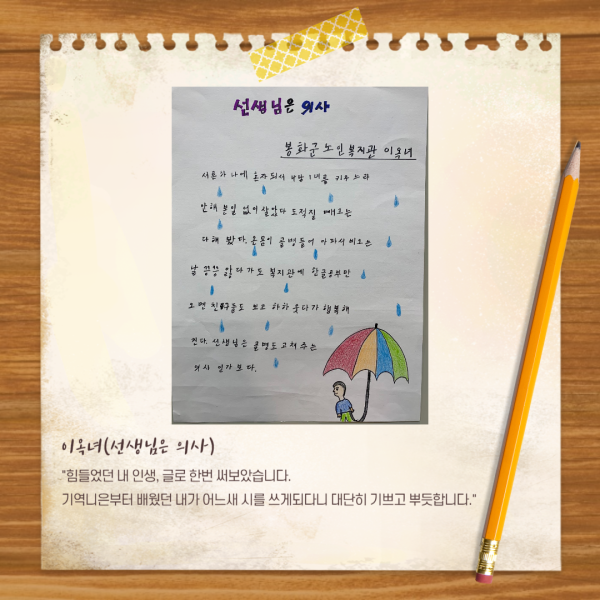 선생님은 의사
봉화군 노인복지관 이옥녀
서른가 나에 혼자되서 4남 1녀를 키우느라
안해 본일 없이 살았다 도적질 빼고는
다해 봤다. 온몸이 골병들어 아파서 비오는
날 끙끙 앓다가도 복지관에 한글공부만
오면 친구들도 보고 하하 웃다가 행복해
진다. 선생님은 골병도 고쳐주는
의사 인가보다.
이옥녀(선생님은 의사)
"힘들었던 내 인생, 글로 한번 써보았습니다.
기역니은부터 배웠던 내가 어느새 시를 쓰게되다니 대단히 기쁘고 뿌듯합니다."